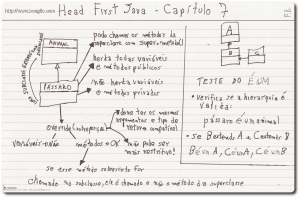 Head First Java - Capítulo 7
ANIMAL
PÁSSARO
pode chamar os métodos da
superclasse com super.metodo()
herda todas variáveis
e métodos públicos
não herda variáveis
e métodos privados
deve ter os mesmos
argumentos e tipo de
retorno compatível
OVERRIDE
variáveis → NÃO métodos → OK
não pode ser
mais restritivo!
se esse método sobrescrito for
chamado na subclasse, ele é chamado e não o método da superclasse
A
B
C
TESTE DO É UM
• verifica se a hierarquia é
válida:
pássaro é um animal
• se B extends A e C extends B
B é um A, C é um A, C é um B